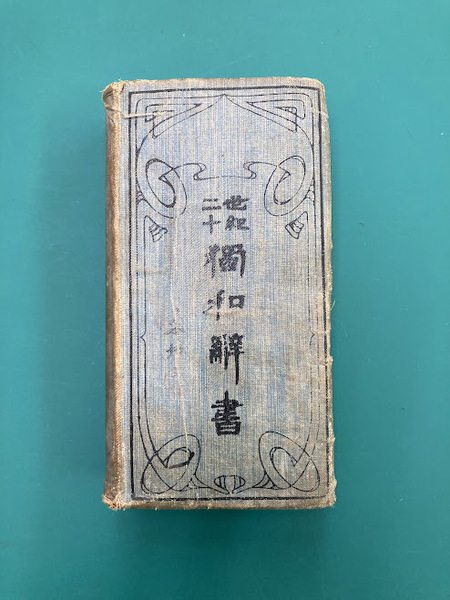 二十
世紀
獨和辭書